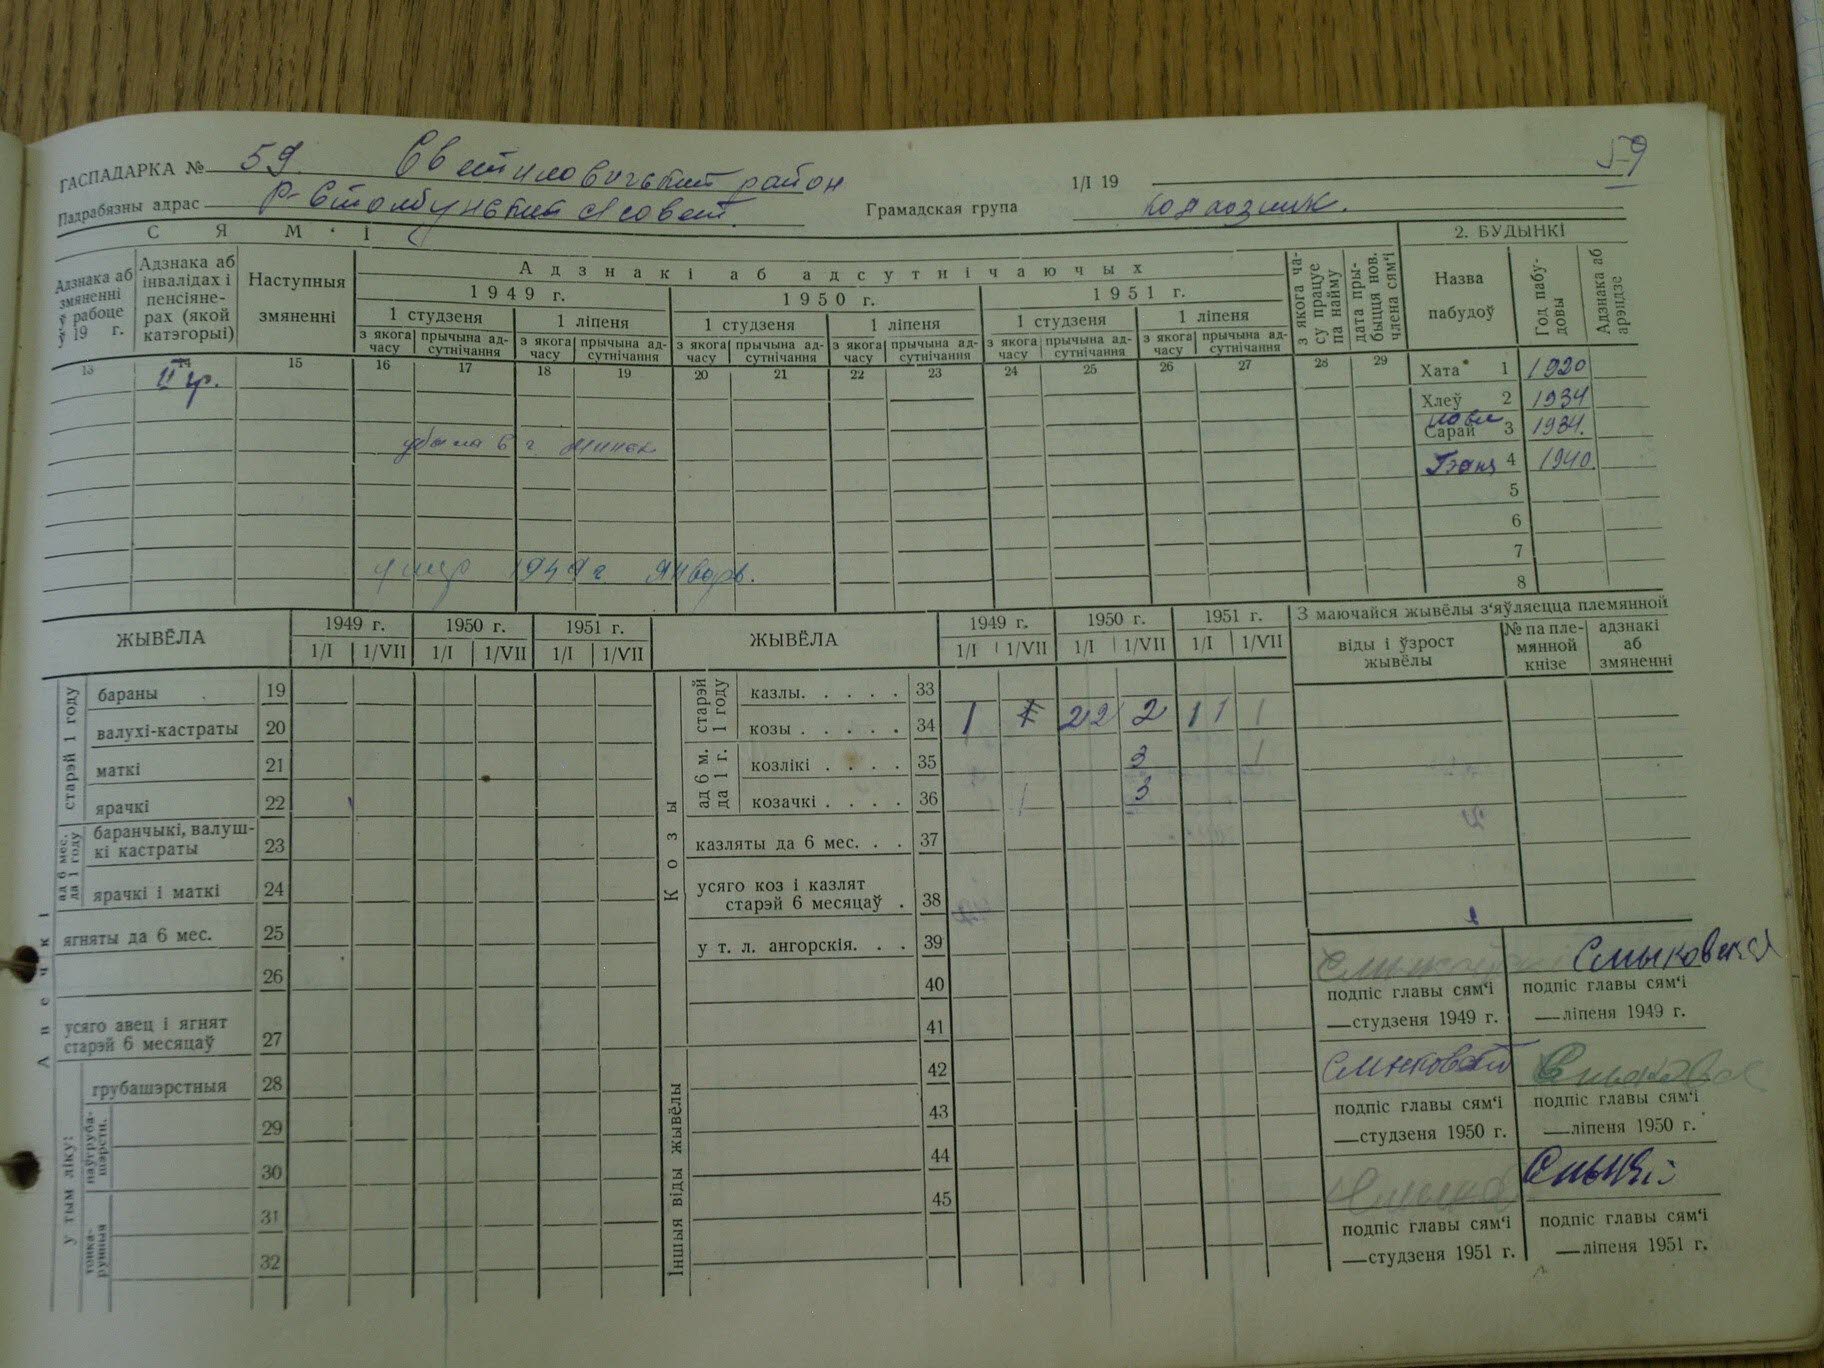 ГАСПАДАРКА № 59. Светиловичский район
59
1/I 19
Падрабязны адрас Р-Столбунский с/совет.
Грамадская група колхозник.
СЯМ'І
2. БУДЫНКІ
Адзнака аб змяненні ў рабоце ў 19 г.
Адзнака аб інвалідах і пенсіянерах (якой катэгорыі)
Наступныя змяненні
Адзнакі аб адсутнічаючых
1949 г. 1950 г. 1951 г.
1 студзеня 1 ліпеня 1 студзеня 1 ліпеня 1 студзеня 1 ліпеня
з якога часу прычына адсутнічання з якога часу прычына адсутнічання з якога часу прычына адсутнічання з якога часу прычына адсутнічання з якога часу прычына адсутнічання з якога часу прычына адсутнічання
з якога часу працуе па найму
дата прыбыцця нов. члена сям'і
Назва пабудоў
Год пабудовы
Адзнака аб арэндзе
13 14 15 16 17 18 19 20 21 22 23 24 25 26 27 28 29
II гр.
Хата 1 1920
Хлеў 2 1934
Сарай 3 1934.
4 1940.
убыла в г. Минск
5
6
7
умер 1949 г Январь.
8
ЖЫВЁЛА
1949 г. 1950 г. 1951 г.
1/I 1/VII 1/I 1/VII 1/I 1/VII
Авечкі
старэй 1 году
бараны 19
валухі-кастраты 20
маткі 21
ярачкі 22
ад 6 мес. да 1 году
баранчыкі, валушкі кастраты 23
ярачкі і маткі 24
ягняты да 6 мес. 25
26
усяго авец і ягнят старэй 6 месяцаў 27
у тым ліку:
грубашэрстныя 28
паўгрубашэрстн.
29
30
тонкарунныя
31
32
ЖЫВЁЛА
1949 г. 1950 г. 1951 г.
1/I 1/VII 1/I 1/VII 1/I 1/VII
Козы
старэй 1 году
казлы. . . . . 33
козы . . . . . 34 1 1 22 2 11 1
ад 6 м. да 1 г.
козлікі . . . . 35 3 1
козачкі . . . . 36 1 3
казляты да 6 мес. . . 37
усяго коз і казлят старэй 6 месяцаў . 38
у т. л. ангорскія. . . 39
40
41
Іншыя віды жывёлы
42
43
44
45
З маючайся жывёлы з'яўляецца племянной
віды і ўзрост жывёлы
№ па племянной кнізе
адзнакі аб змяненні
Смыковская
подпіс главы сям'і —студзеня 1949 г.
подпіс главы сям'і —ліпеня 1949 г.
подпіс главы сям'і —студзеня 1950 г.
подпіс главы сям'і —ліпеня 1950 г.
подпіс главы сям'і —студзеня 1951 г.
подпіс главы сям'і —ліпеня 1951 г.